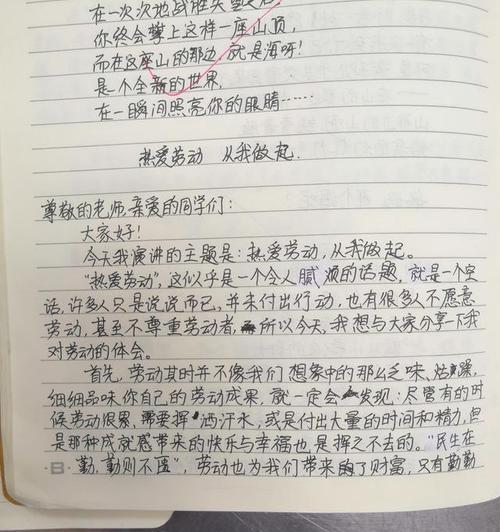 在一次次地战胜失望之后
你终会攀上这样一座山顶,
而在这座山的那边,就是海呀!
是个全新的世界,
在一瞬间照亮你的眼睛……
热爱劳动 从我做起.
尊敬的老师,亲爱的同学们:
大家好!
今天我演讲的主题是:热爱劳动,从我做起。
“热爱劳动”,这似乎是一个令人腻烦的话题,就是一个空
话,许多人只是说说而已,并未付出行动,也有很多人不愿意
劳动,甚至不尊重劳动者,所以今天,我想与大家分享一下我
对劳动的体会。
首先,劳动其时并不像我们想象中的那么乏味、枯躁,
细细品味你自己的劳动成果,就一定会发现:尽管有的时
候劳动很累,需要挥洒汗水,或是付出大量的时间和精力,但
是那种成就感带来的快乐与幸福也是挥之不去的。“民生在
勤,勤则不匮”,劳动也为我们带来了财富,只有勤勤